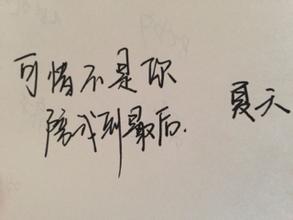 可惜不是你
陪我到最后.
夏天